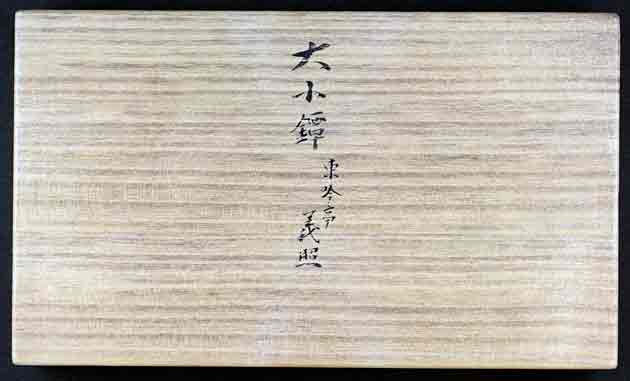 大小鐔 東吟亭 義照